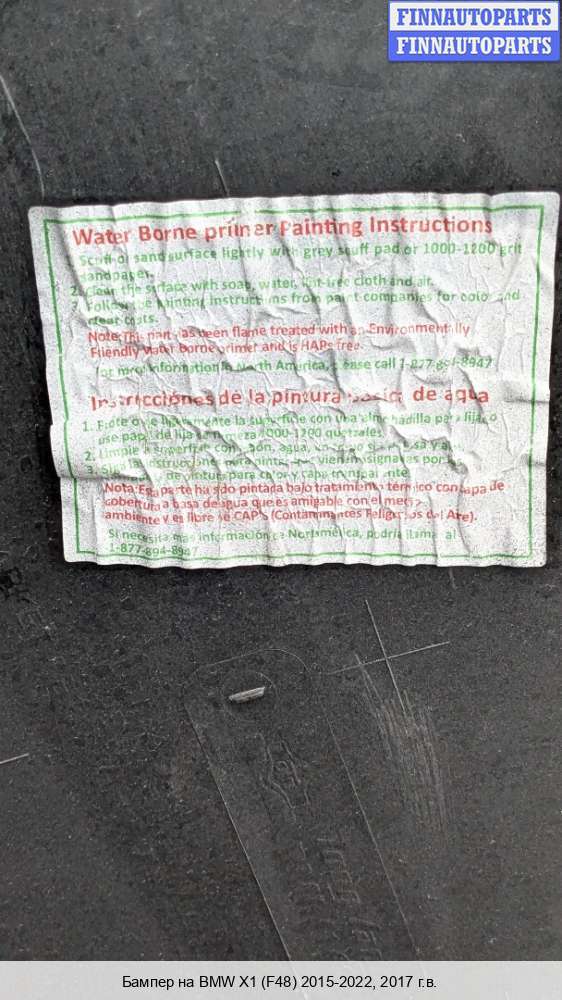 FINNAUTOPARTS
FINNAUTOPARTS
Water Borne primer Painting Instructions
sand surface lightly with grey scuff pad or 1000-1200 grit
sandpaper.
2. Clean the surface with soap, water, lint-free cloth and air.
3. Follow the painting instructions from paint companies for color and
clear coats.
Note: This part has been flame treated with an Environmentally
Friendly water borne primer and is HAPs free.
for more information in North America, please call 1-877-894-8947
Instricciones de la pintura de aqua
1. Frote o lije ligeramente la superficie con una almohadilla para lijar o
use papel de lija 1000-1200
2. Limpie la superficie con jabón, agua,
3.
de pintura para color y capa transparente.
Nota: Esa parte ha sido pintada bajo tratamiento térmico con capa de
cobertura a basa de agua que es amigable con el
ambiente y es libre se CAP's (Contaminantes Peligrosos del Aire).
Si necesita mas información en Norteamérica, podria llamar al
1-877-894-8947
Бампер на BMW X1 (F48) 2015-2022, 2017 г.в.